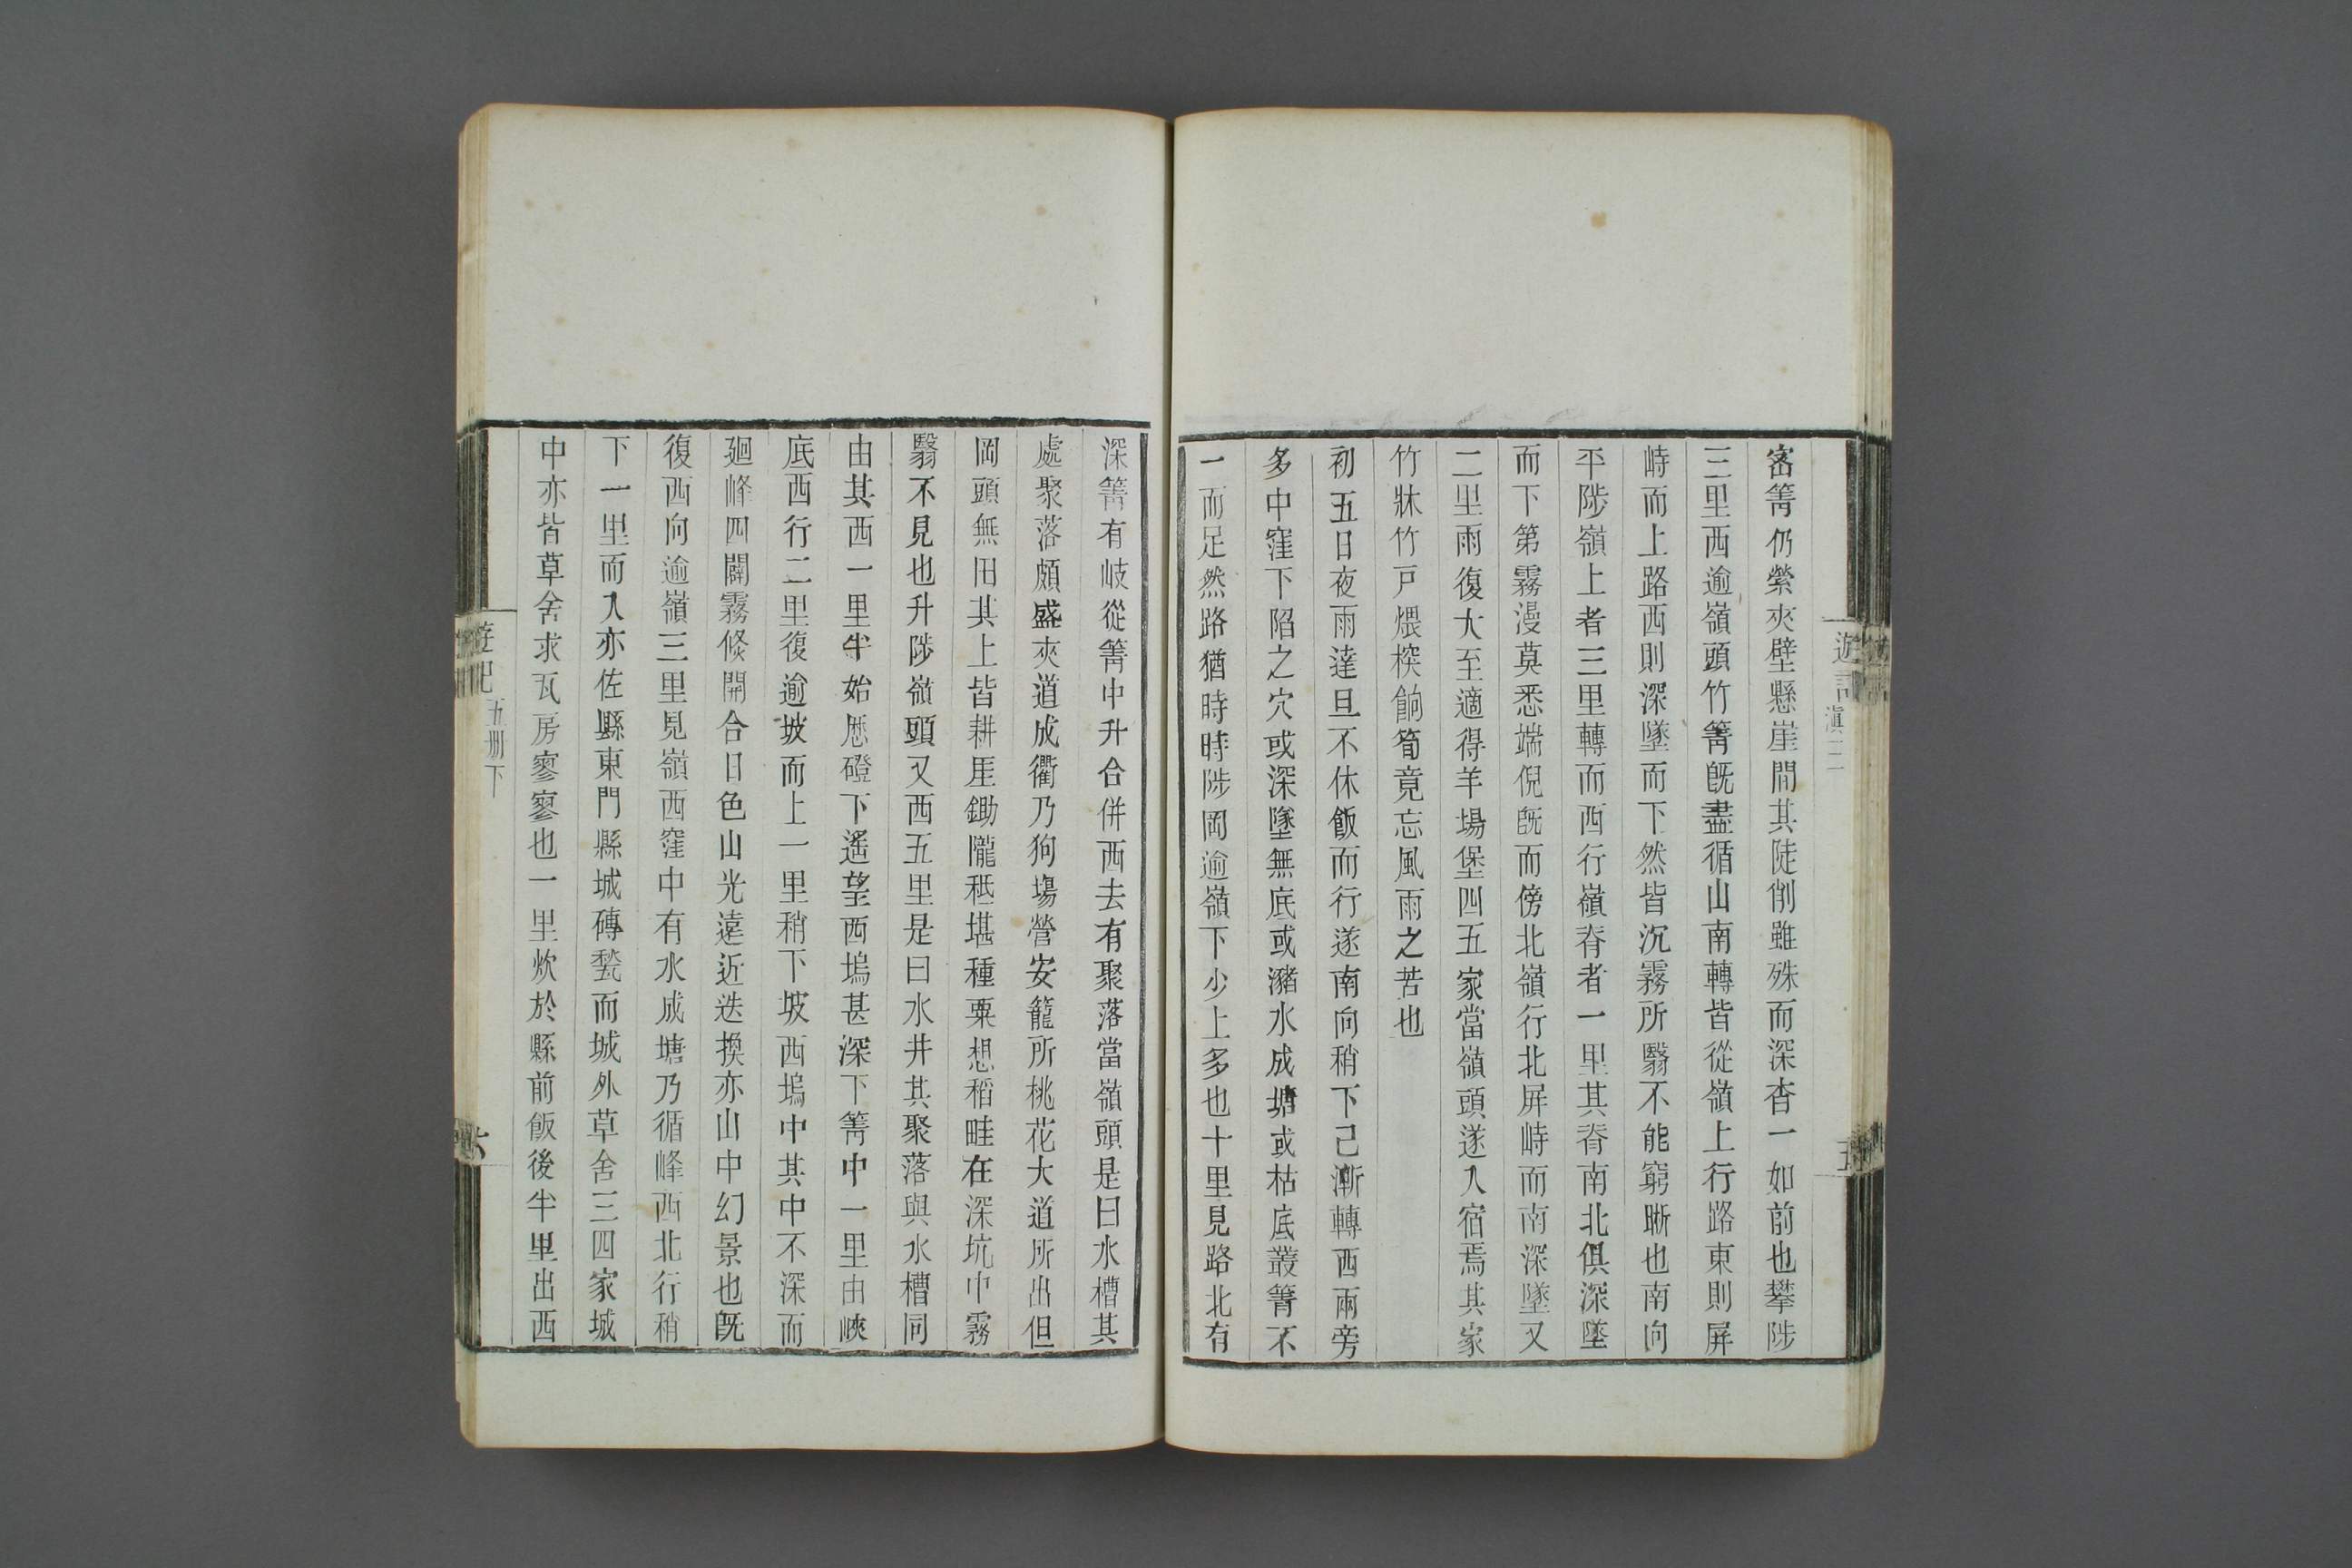 遊記滇三
五
密箐仍縈夾壁懸崖間其陡削雖殊而深杳一如前也攀陟
三里西逾嶺頭竹箐既盡循山南轉皆從嶺上行路東則屏
峙而上路西則深墜而下然皆沉霧所翳不能窮晰也南向
平陟嶺上者三里轉而西行嶺脊者一里其脊南北俱深墜
而下第霧漫莫悉端倪既而傍北嶺行北屏峙而南深墜又
二里雨復大至適得羊場堡四五家當嶺頭遂入宿焉其家
竹牀竹戶煨榾餉筍竟忘風雨之苦也
初五日夜雨達旦不休飯而行遂南向稍下已漸轉西兩旁
多中窪下陷之穴或深墜無底或瀦水成塘或枯底叢箐不
一而足然路猶時時陟岡逾嶺下少上多也十里見路北有
深箐有岐從箐中升合併西去有聚落當嶺頭是曰水槽其
處聚落頗盛夾道成衢乃狗場營安籠所桃花大道所出但
岡頭無田其上皆耕厓鋤隴秪堪種粟想稻畦在深坑中霧
翳不見也升陟嶺頭又西五里是曰水井其聚落與水槽同
由其西一里半始歷磴下遙望西塢甚深下箐中一里由峽
底西行二里復逾坡而上一里稍下坡西塢中其中不深而
廻峰四闢霧倐開合日色山光遠近迭換亦山中幻景也既
復西向逾嶺三里見嶺西窪中有水成塘乃循峰西北行稍
下一里而入亦佐縣東門縣城磚甃而城外草舍三四家城
中亦皆草舍求瓦房寥寥也一里炊於縣前飯後半里出西
遊記五冊下
六